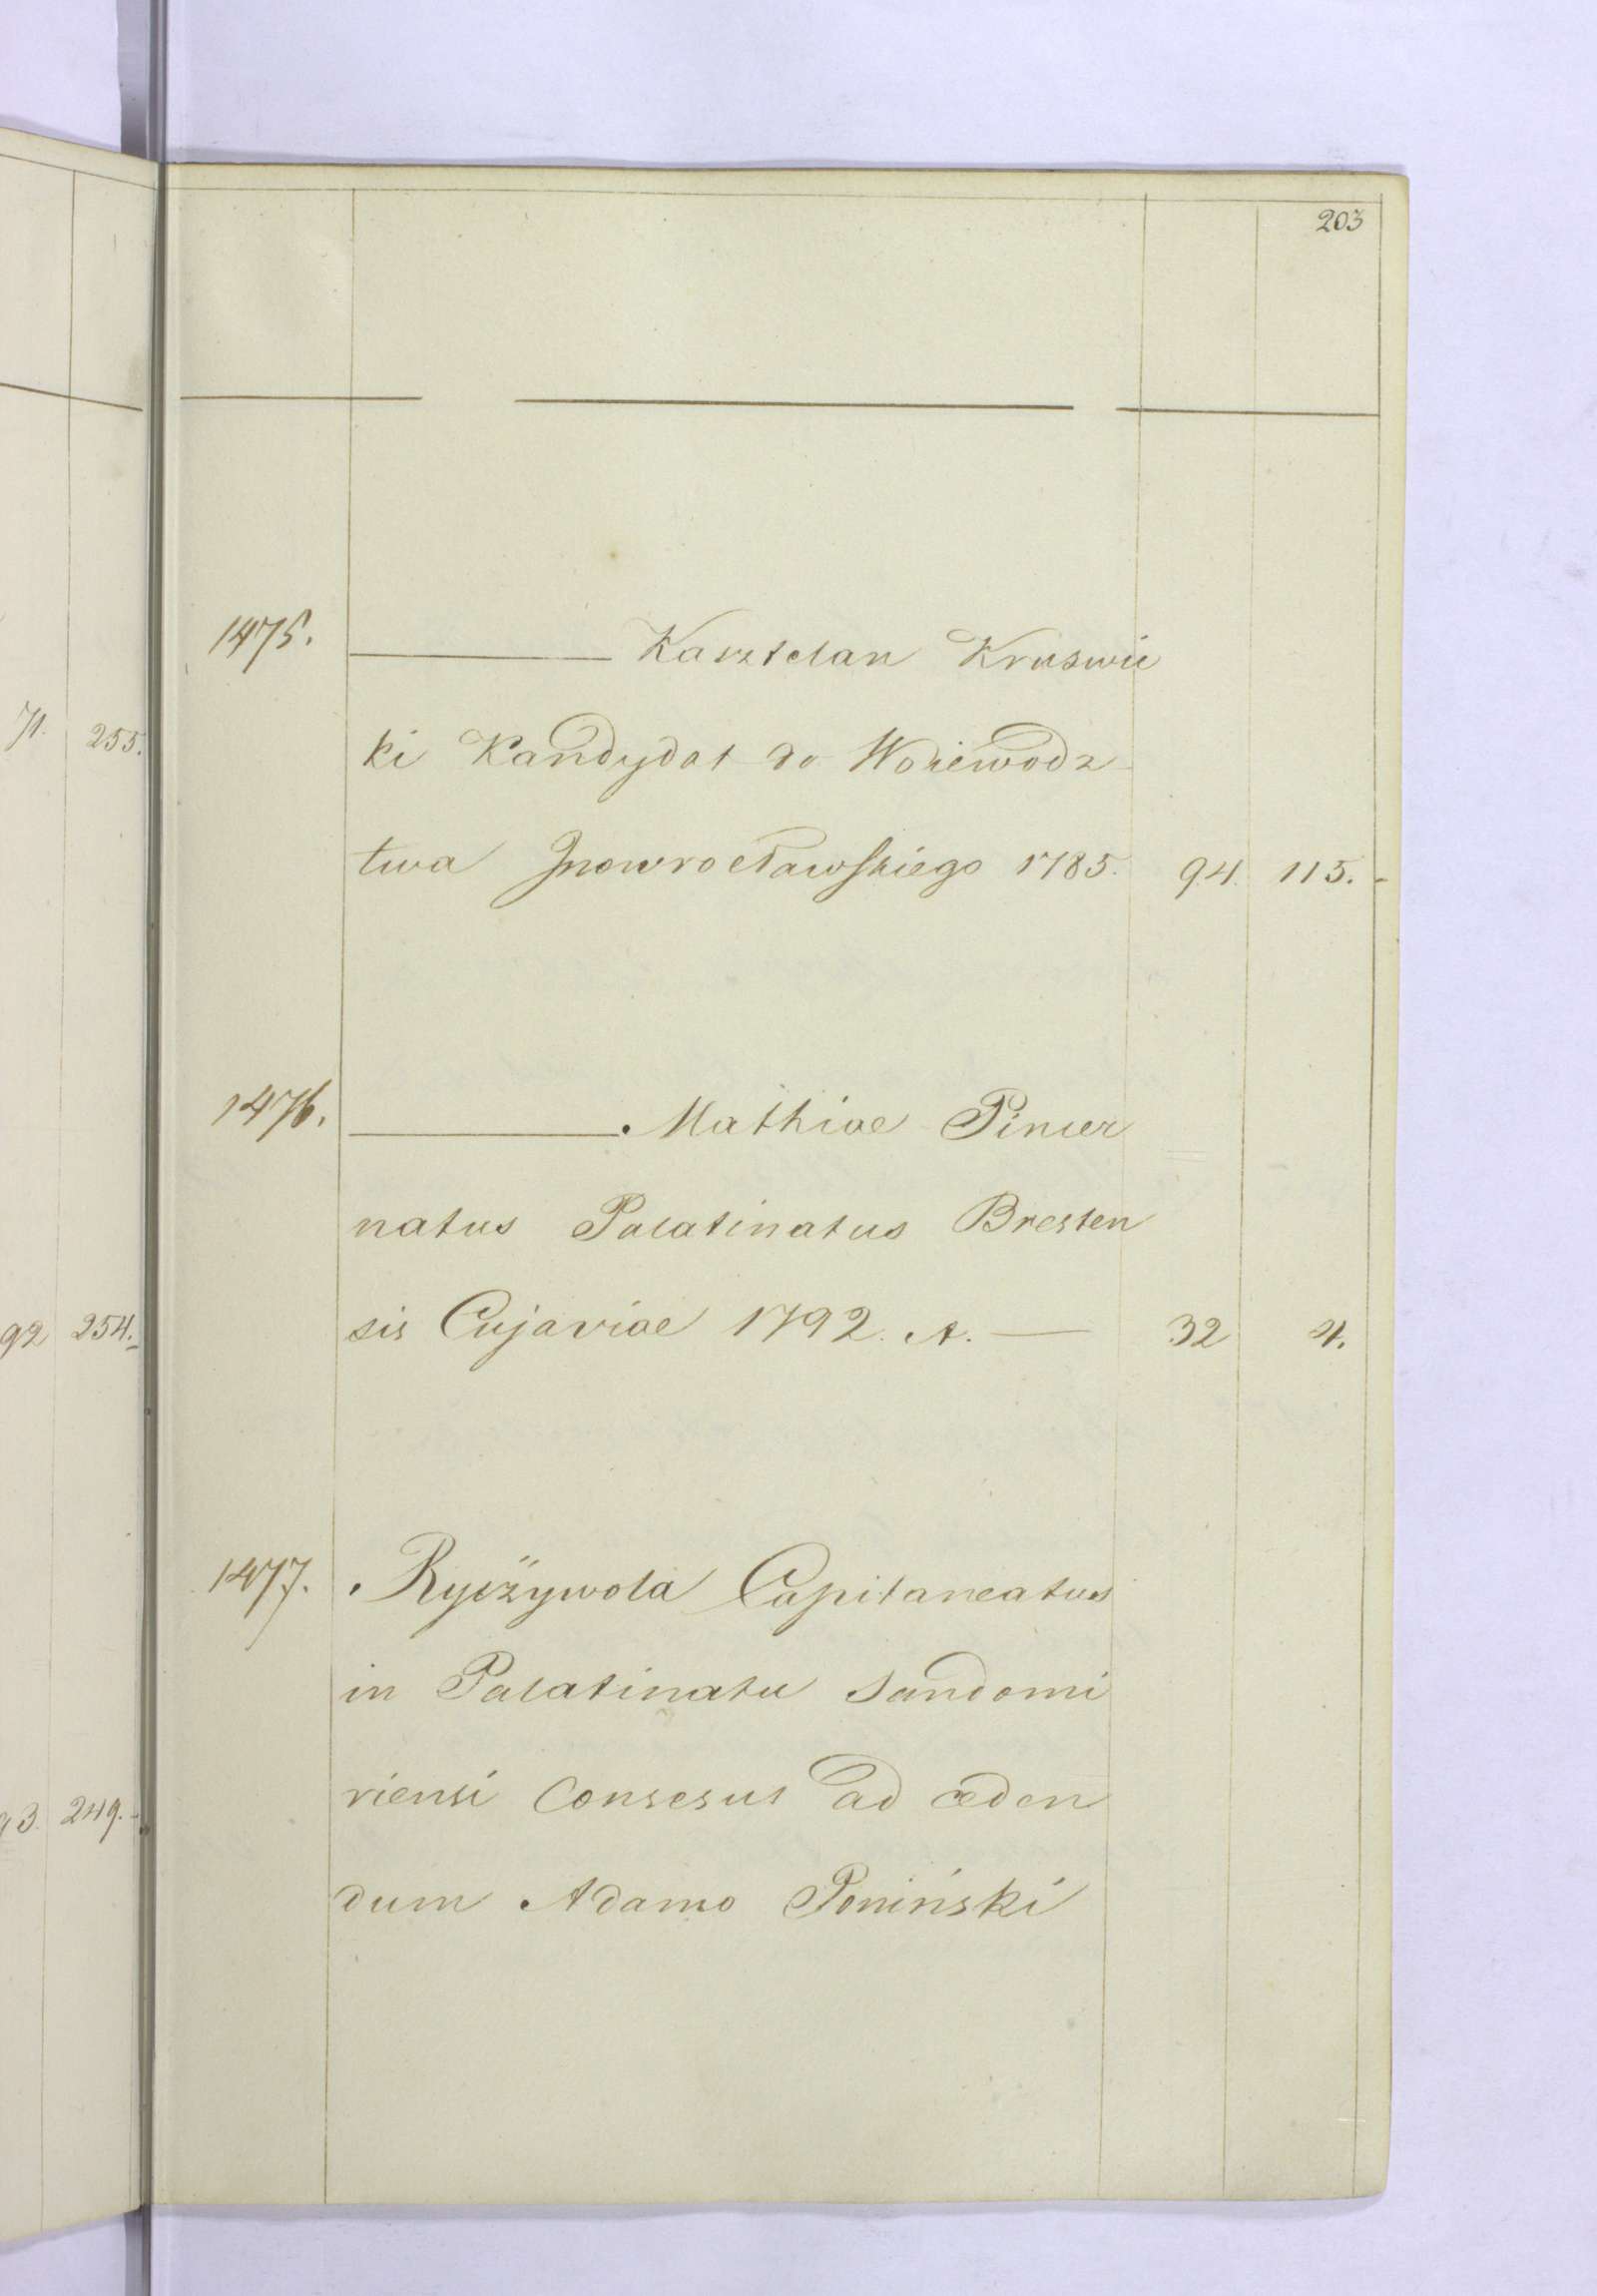 203
1475. Kasztelan Kruswic
ki Kandydat do Wojewodz
twa Inowrocławskiego 1785. 94. 115.
1476. Mathiae Pincer
natus Palatinatus Bresten
sis Cujaviae 1792. A. 32 4.
1477. Ryczÿwola Capitaneatus
in Palatinatu Sandomi
riensi Consesus ad ceden
dum Adamo Poniński
71. 255.
92 254.
93. 249.